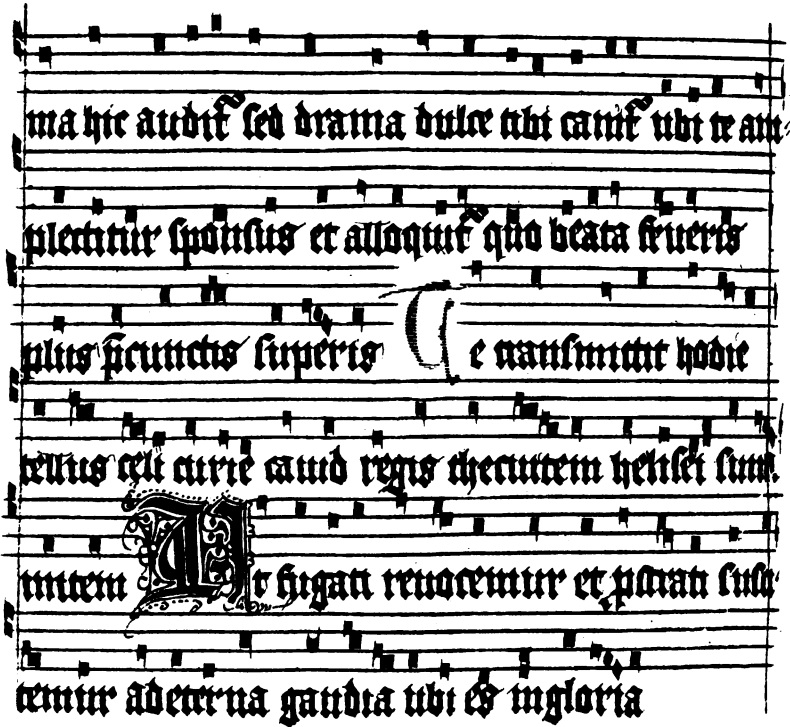 ma hic audit᷑ sed drama dulce tibi canit᷑ ubi te am-
plectitur sponsus et alloquit᷑ quo beata frueris
plus p̄cunctis superis Te transmittit hodie
tellus celi curie dauid regis thecuitem helisei suna-
mitem Ut fugati reuocemur et pstrati susci-
temur ad eterna gaudia ubi es in gloria